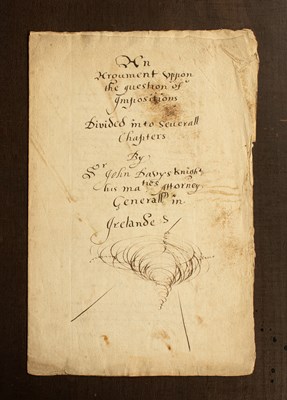 An
Argument Vppon
the question of
Impositions
Divided into Severall
Chapters
By
Sr John Davys Knight
his maties Attorney
Generall in
Irelande